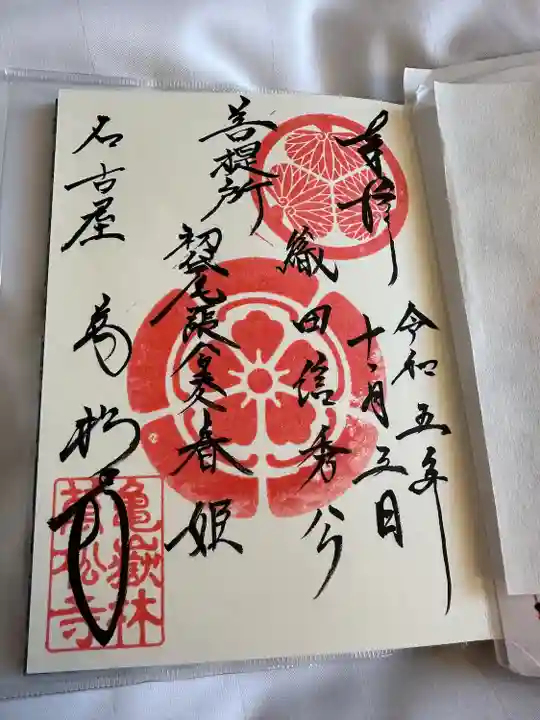 奉拝
令和五年
十一月五日
織田信秀公
菩提所
初代尾張公夫人春姫
名古屋
萬松寺
亀嶽林
萬松寺